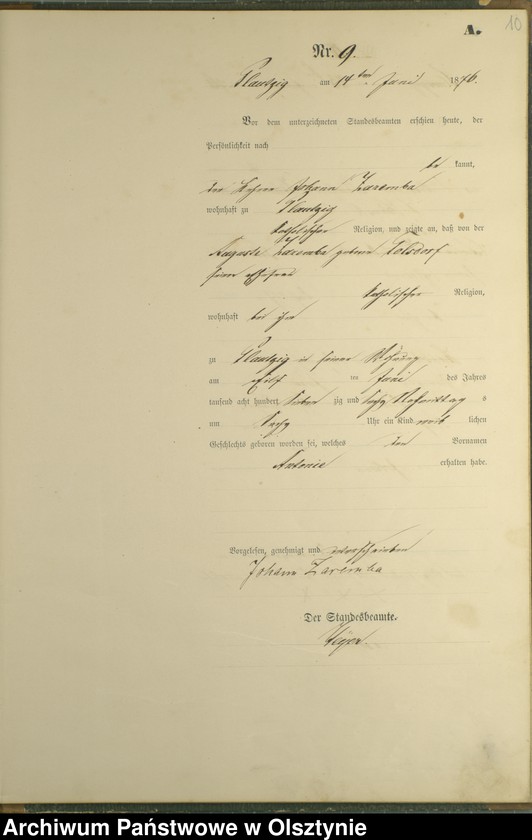 A.
10
Nr. 9.
Plautzig am 14ten Juni 1876.
Vor dem unterzeichneten Standesbeamten erschien heute, der
Persönlichkeit nach
be kannt,
der Johann Zaremba
wohnhaft zu Plautzig
katholischer Religion, und zeigte an, daß von der
Auguste Zaremba geborne Tolsdorf
seiner Ehefrau
katholischer Religion,
wohnhaft bei ihm
zu Plautzig in seiner Wohnung
am elf ten Juni des Jahres
tausend acht hundert sieben zig und sechs Nachmittag s
um sechs Uhr ein Kind weib lichen
Geschlechts geboren worden sei, welches den Vornamen
Antonie erhalten habe.
Vorgelesen, genehmigt und unterschrieben
Johann Zaremba
Der Standesbeamte.
Archiwum Państwowe w Olsztynie